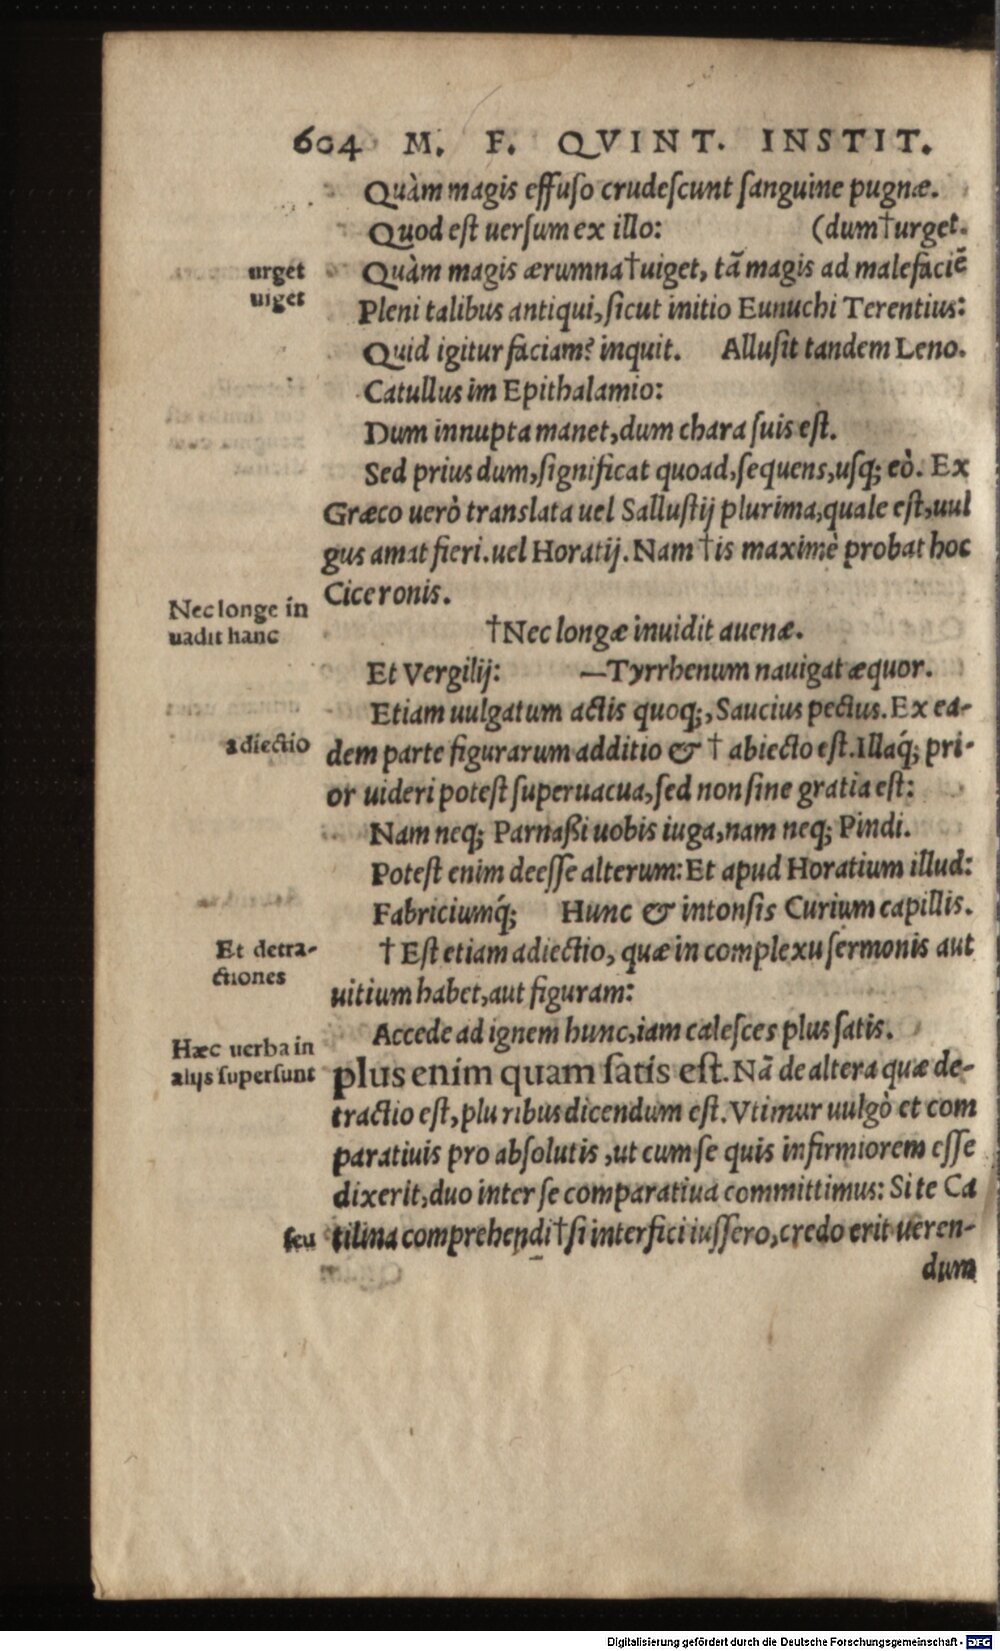 604 M. F. QVINT. INSTIT.
Quàm magis effuso crudescunt sanguine pugnæ.
Quod est uersum ex illo: (dum†urget.
urget
Quàm magis ærumna†uiget, tã magis ad malefaciẽ
uiget
Pleni talibus antiqui, sicut initio Eunuchi Terentius:
Quid igitur faciam? inquit. Allusit tandem Leno.
Catullus im Epithalamio:
Dum innupta manet, dum chara suis est.
Sed prius dum, significat quoad, sequens, usq; eò. Ex
Græco uerò translata uel Sallustij plurima, quale est, uul
gus amat fieri. uel Horatij. Nam †is maximè probat hoc
Ciceronis.
Nec longe in
uadit hanc
†Nec longæ inuidit auenæ.
Et Vergilij: —Tyrrhenum nauigat æquor.
Etiam uulgatum actis quoq;, Saucius pectus. Ex ea-
adiectio
dem parte figurarum additio & † abiecto est. Illaq́; pri-
or uideri potest superuacua, sed non sine gratia est:
Nam neq; Parnaßi uobis iuga, nam neq; Pindi.
Potest enim deesse alterum: Et apud Horatium illud:
Fabriciumq́; Hunc & intonsis Curium capillis.
Et detra-
ctiones
† Est etiam adiectio, quæ in complexu sermonis aut
uitium habet, aut figuram:
Accede ad ignem hunc, iam calesces plus satis.
Hæc uerba in
alijs supersunt
plus enim quam satis est. Nã de altera quæ de-
tractio est, pluribus dicendum est. Vtimur uulgò et com
paratiuis pro absolutis, ut cum se quis infirmiorem esse
dixerit, duo inter se comparatiua committimus: Si te Ca
seu
tilina comprehendi†si interfici iussero, credo erit ueren-
dum
Digitalisierung gefördert durch die Deutsche Forschungsgemeinschaft - DFG